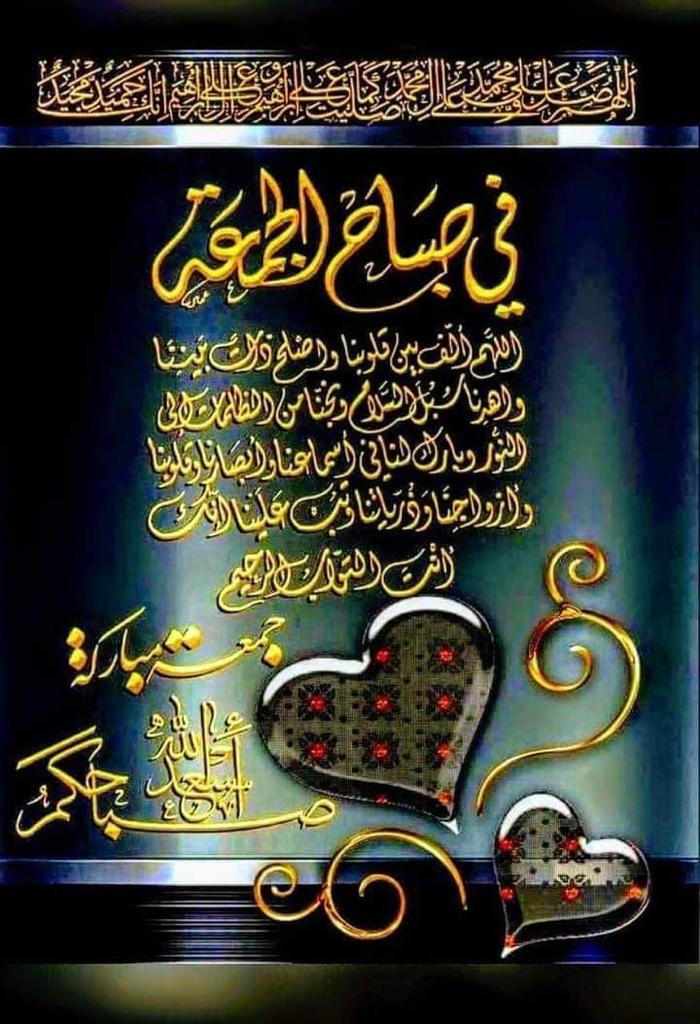 اللهم صل على محمد وعلى آل محمد كما صليت على إبراهيم وعلى آل إبراهيم إنك حميد مجيد
في صباح الجمعة
اللهم ألف بين قلوبنا واصلح ذات بيننا
واهدنا سبل السلام ونجنا من الظلمات إلى
النور وبارك لنا في أسماعنا وأبصارنا وقلوبنا
وأزواجنا وذرياتنا وتب علينا إنك
انت التواب الرحيم
جمعة مباركة
أسعد الله
صباحكم